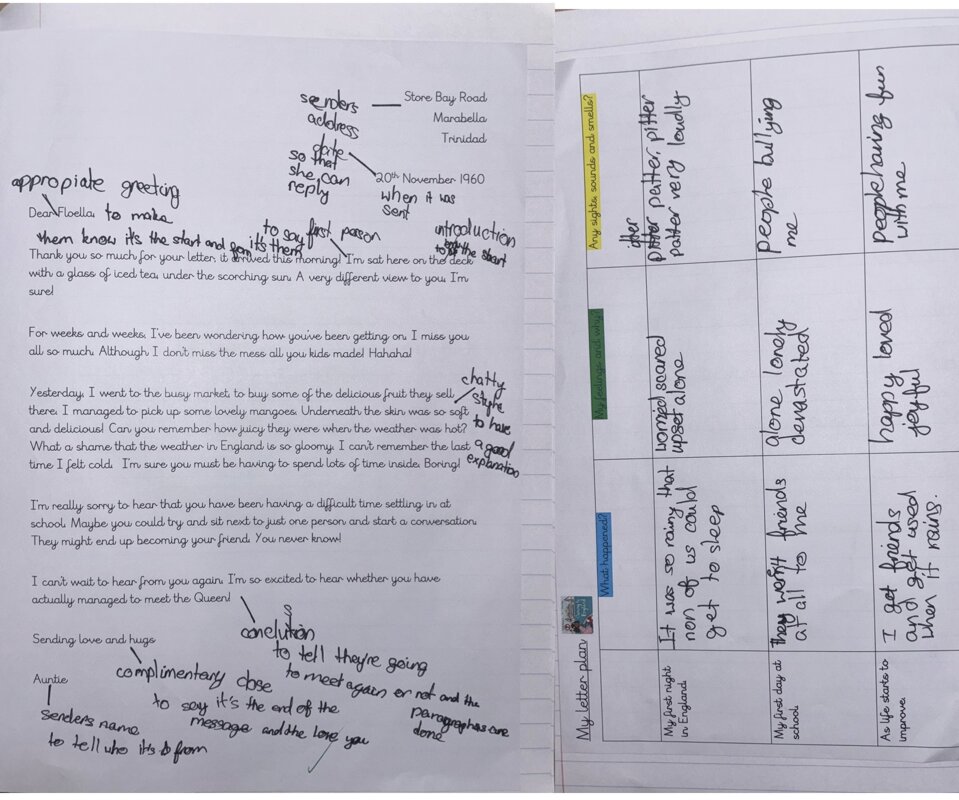 senders
address
Store Bay Road
Marabella
Trinidad
date
so that
she can
reply
20th November 1960
when it was
sent
appropiate greeting
Dear Floella, to make
them know it's the start and it's them
to say first person
introduction
the start
Thank you so much for your letter, it arrived this morning! I'm sat here on the deck
with a glass of iced tea, under the scorching sun. A very different view to you, I'm
sure!
For weeks and weeks, I've been wondering how you've been getting on. I miss you
all so much. Although I don't miss the mess all you kids made! Hahaha!
chatty
style
to have
a good
explanation
Yesterday, I went to the busy market to buy some of the delicious fruit they sell
there. I managed to pick up some lovely mangoes. Underneath the skin was so soft
and delicious! Can you remember how juicy they were when the weather was hot?
What a shame that the weather in England is so gloomy. I can't remember the last
time I felt cold. I'm sure you must be having to spend lots of time inside. Boring!
I'm really sorry to hear that you have been having a difficult time settling in at
school. Maybe you could try and sit next to just one person and start a conversation.
They might end up becoming your friend. You never know!
I can't wait to hear from you again. I'm so excited to hear whether you have
actually managed to meet the Queen!
conclution
s
to tell they're going
to meet again or not and the
paragraphs are
done
Sending love and hugs
complimentary close
to say it's the end of the
message and the love you
Auntie
senders name
to tell who it's from
My letter plan
What happened?
My feelings and why?
Any sights, sounds and smells?
My first night
in England
It was so rainy that
non of us could
get to sleep
worried scared
upset alone
pitter patter, pitter
patter very loudly
My first day at
school.
They weren't friends
at all to me
alone lonely
devastated
people bullying
me
As life starts to
improve.
I got friends
and get used
when it rains.
happy loved
joyful
people having fun
with me